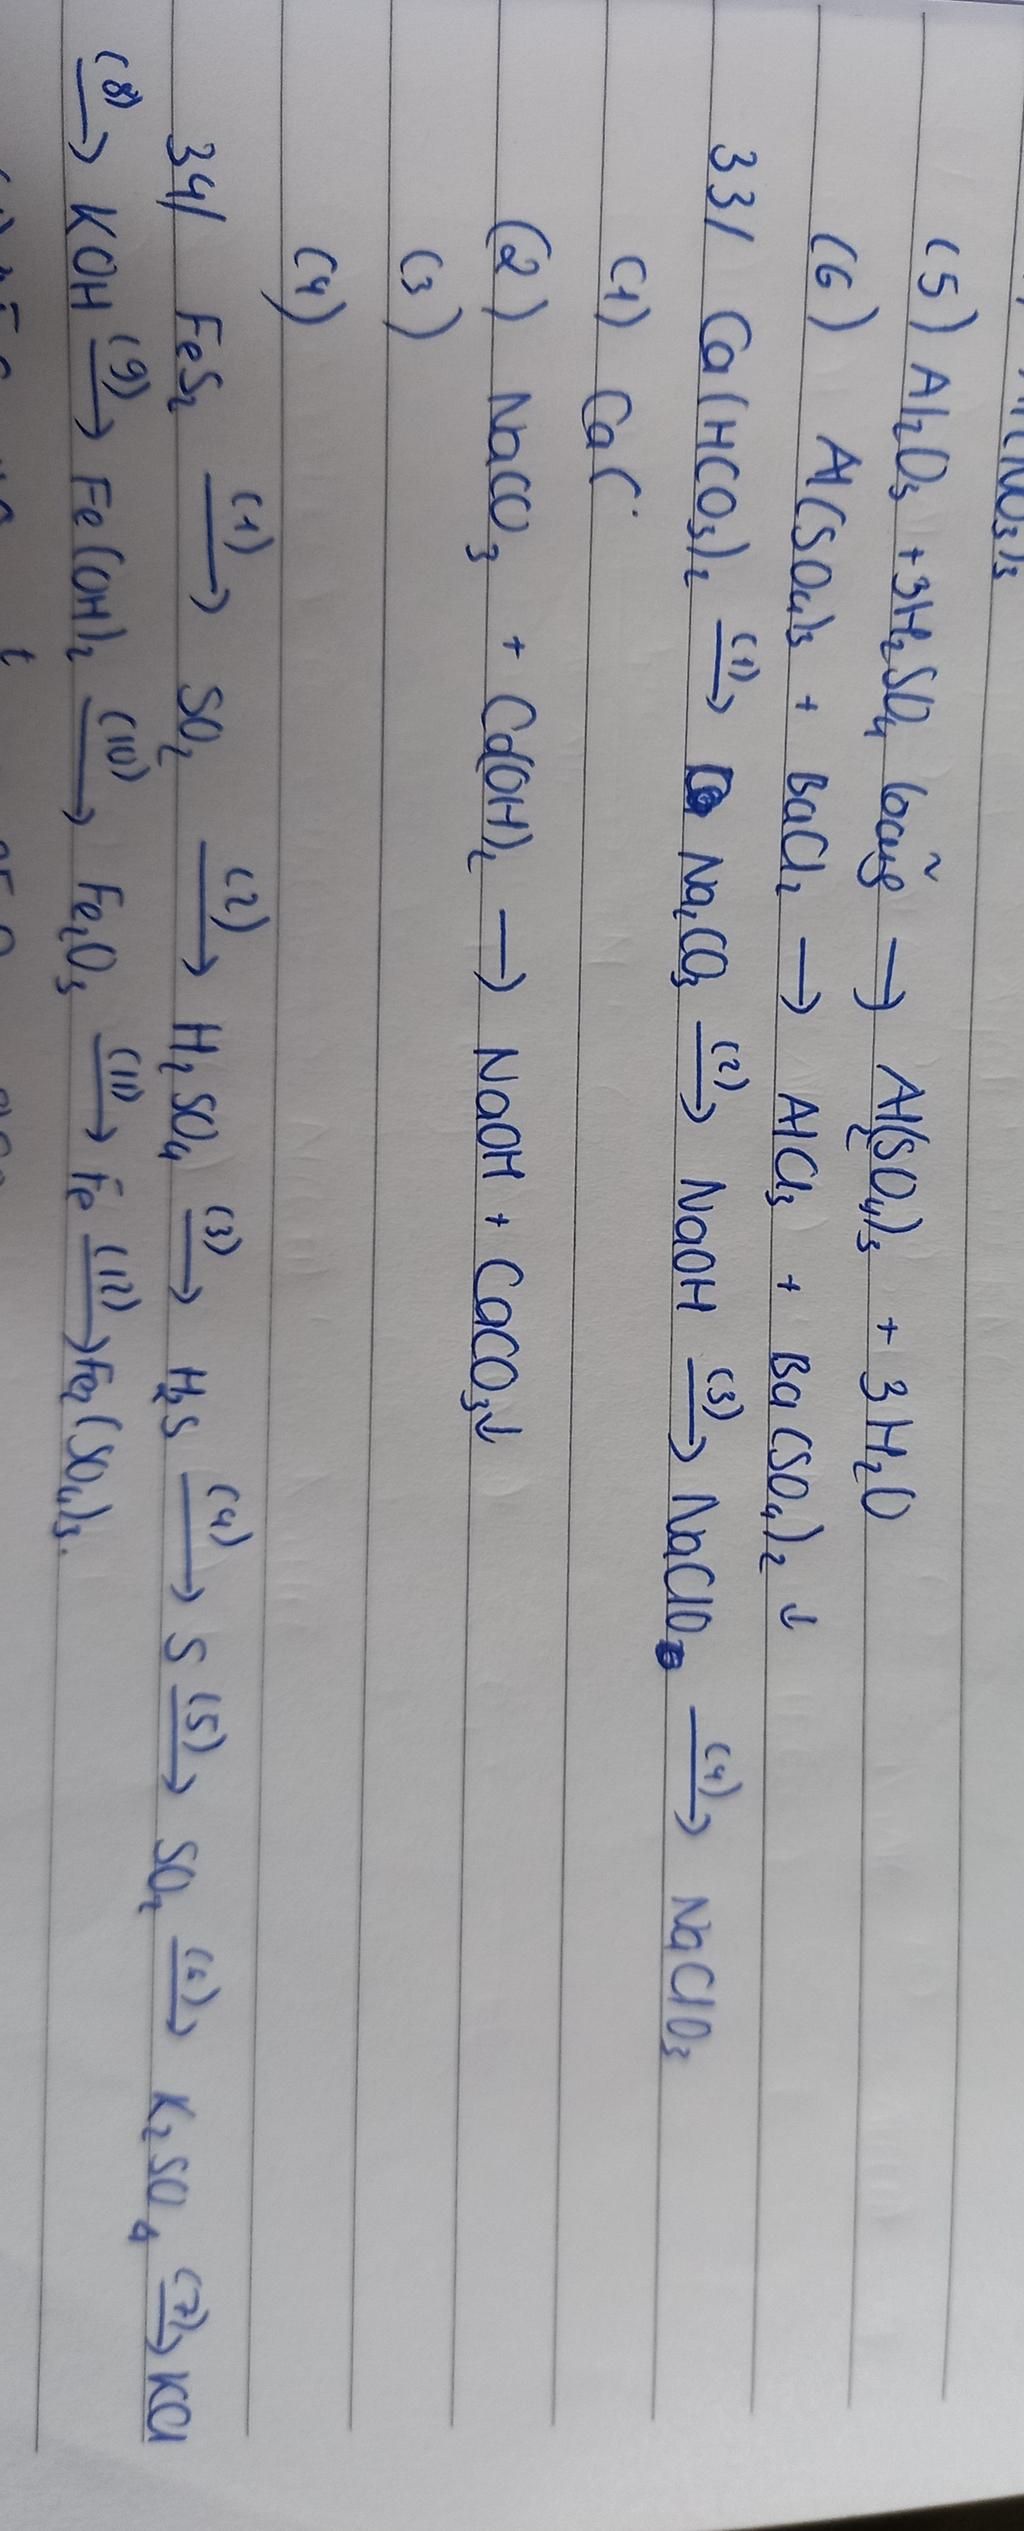 (5) Al₂O₃ + 3H₂SO₄ loãng → Al₂(SO₄)₃ + 3H₂O
(6) Al(SO₄)₃ + BaCl₂ → AlCl₃ + Ba(SO₄)₂ ↓
33/ Ca(HCO₃)₂ (1)→ Na₂CO₃ (2)→ NaOH (3)→ NaClO (4)→ NaClO₃
(1) CaC
(2) NaCO₃ + Ca(OH)₂ → NaOH + CaCO₃↓
(3)
(4)
34/ FeS₂ (1)→ SO₂ (2)→ H₂SO₄ (3)→ H₂S (4)→ S (5)→ SO₂ (6)→ K₂SO₄ (7)→ KCl
(8)→ KOH (9)→ Fe(OH)₂ (10)→ Fe₂O₃ (11)→ Fe (12)→ Fe₂(SO₄)₃.